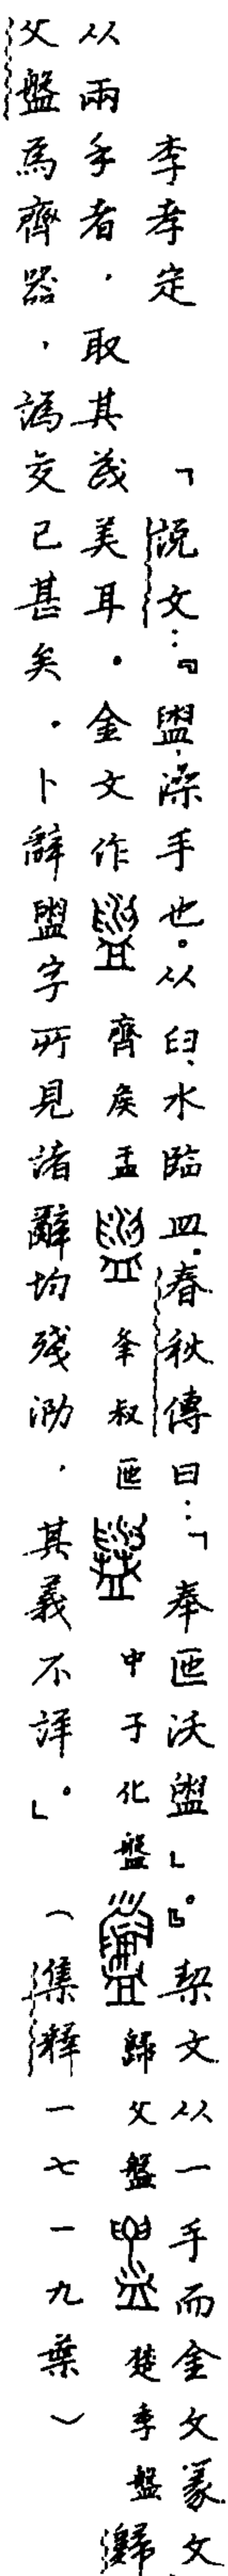 李孝定　「說文：『盥、澡手也。从臼、水臨皿。春秋傳曰：「奉匜沃盥」。』契文从一手而金文篆文
从兩手者，取其茂美耳。金文作　齊侯盂　夆叔匜　中子化盤　歸父盤　楚季盤　歸
父盤為齊器，譌变已甚矣。卜辭盥字所見諸辭均殘泐，其義不詳。」（集釋一七一九葉）